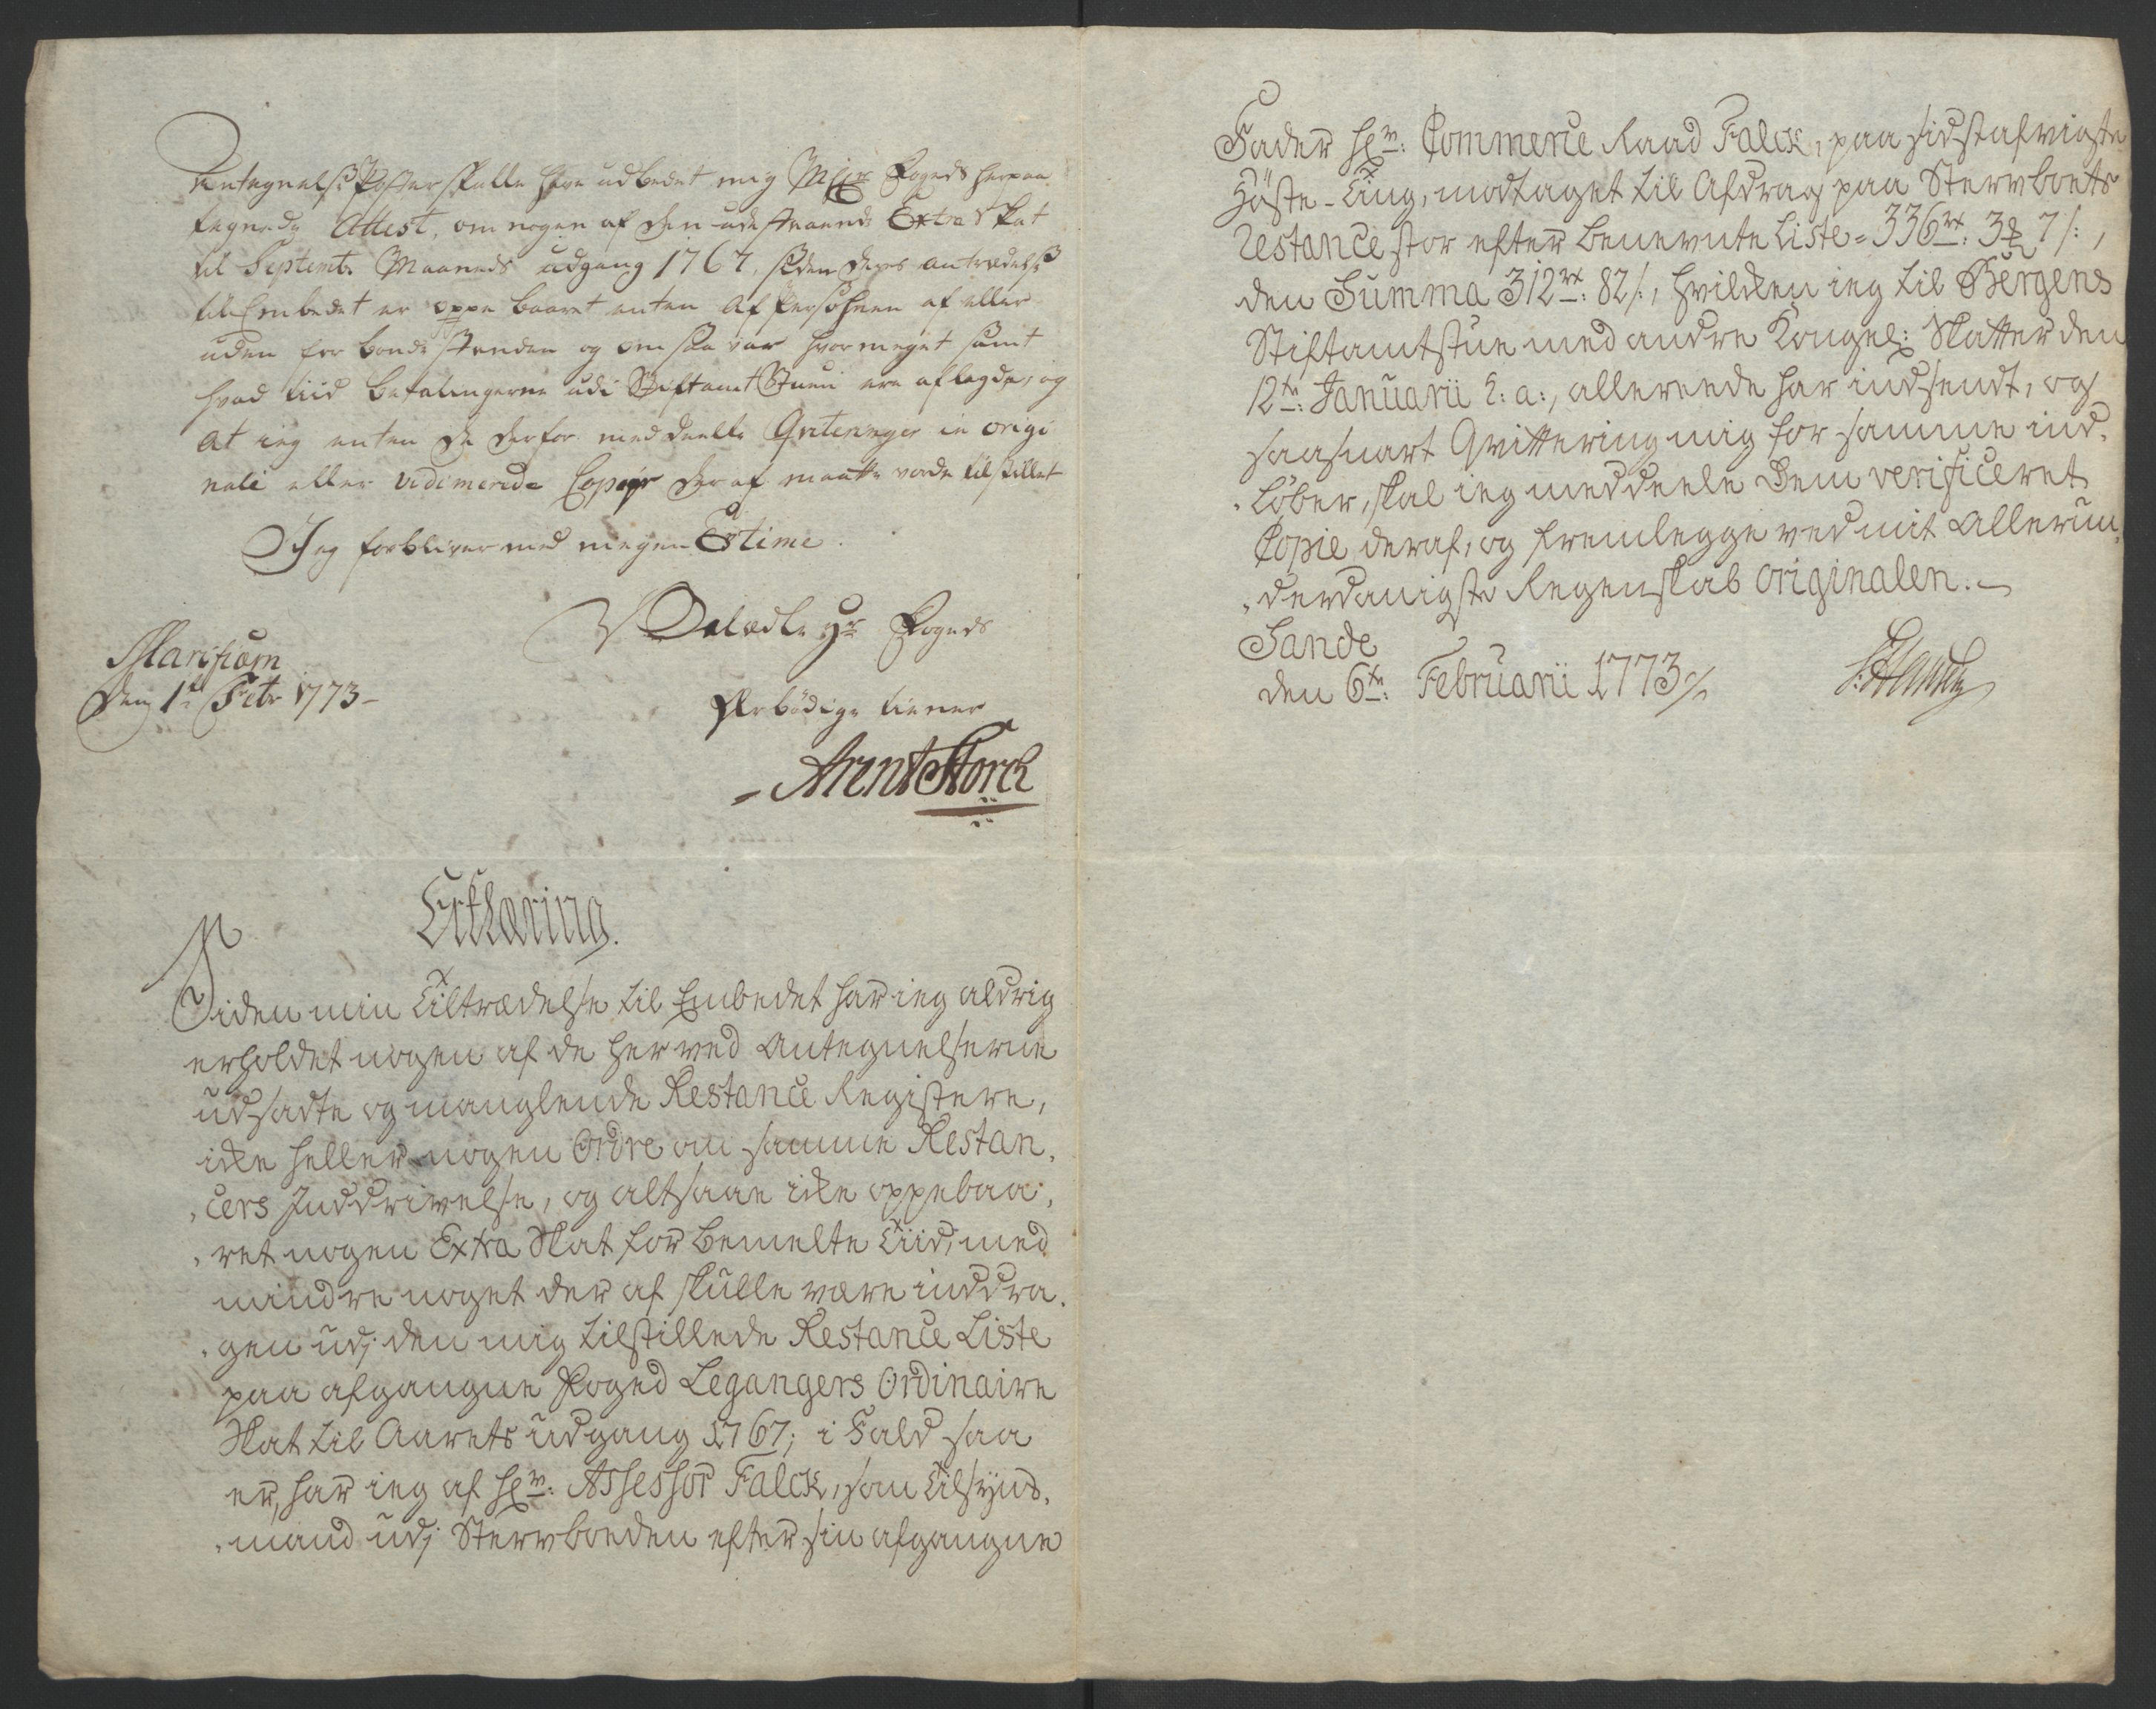 Antegnelses Poster skulle have udbedet mig Mhr Fogeds herpaa
tegnede Attest, om nogen af den udestaaende Extra Skat
til Septembr Maaneds udgang 1767, siden Deres antrædelse
til Embedet er oppe baaret enten af Persohner af eller
uden for bonde standen og om saa var hvor meget samt
hvad tiid betalingerne udi Stiftamt Stuen ere aflagde, og
at ieg enten de derfor meddeelte Qviteringer in origi
nali eller vidimerede Copier deraf maatte vorde tilstillet
Jeg forbliver med megen Estime.
Velædle Hr Fogeds
den 1te Febr 1773-
Ærbödige tiener
Arent Storck
Erklæring.
Siden min Tiltrædelse til Embedet har ieg aldrig
erholdet nogen af de her ved Antegnelserne
udsadte og manglende Restance Registere,
ikke heller nogen Ordre om samme Restan,
,cers Inddrivelse, og altsaa ikke oppebaa,
,ret nogen Extra Skat for bemelte Tiid, med
mindre noget der af skulle være inddra,
,gen udj den mig tilstillede Restance Liste
paa afgangne Foged Legangers Ordinaire
Skat til Aarets udgang 1767; i Fald saa
er, har ieg af Hr: Assessor Falck, som Tilsyns,
,mand udj Stervboeden efter sin afgangne
Fader Hr: Commerce Raad Falck, paa sidstafvigte
Höste-Ting, modtaget til Afdrag paa Stervboets
Restance stor efter benevnte Liste = 336rt: 3 7/:,
den Summa 312rt: 82/:, hvilken ieg til Bergens
Stiftamtstue med andre Kongel: Skatter den
12te: Januarii h: a:, allereede har indsendt, og
saasnart Qvittering mig for samme ind,
,löber, skal ieg meddeele Dem verificeret
Copie deraf, og fremlegge ved mit Allerun,
,derdanigste Regenskab Originalen.-
Sande
den 6te: Februarii 1773